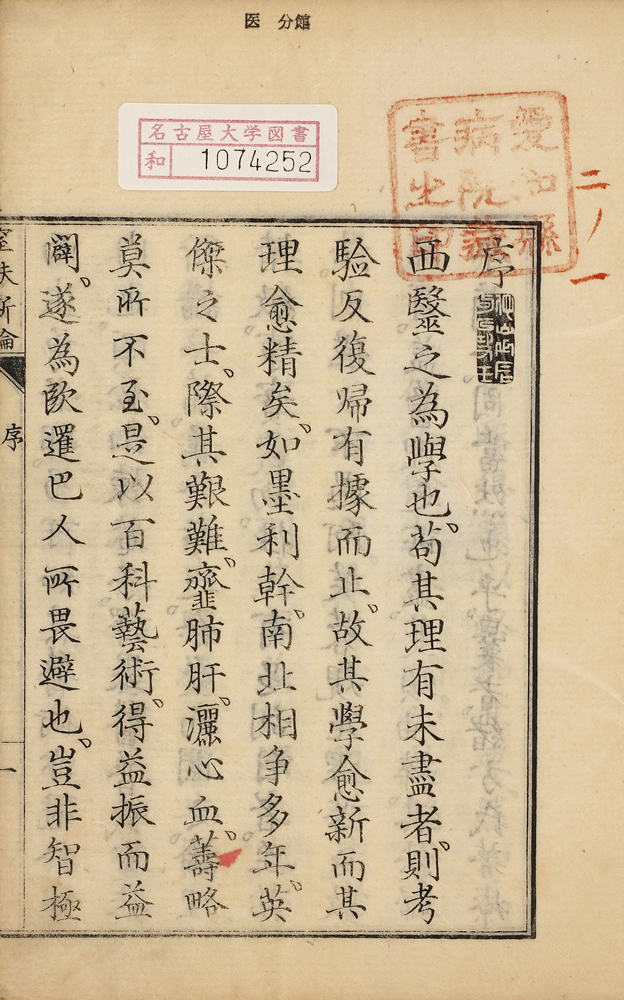 医 分館
名古屋大学図書
和 1074252
愛知縣
病院藏
書之印
二ノ一
序
西毉之為學也、苟其理有未盡者、則考
驗反復歸有據而止、故其學愈新而其
理愈精矣、如墨利幹、南北相争多年、英
傑之士、際其艱難、虀肺肝、灑心血、籌略
莫所不至、是以百科藝術、得益振而益
闢、遂為歐邏巴人所畏避也、豈非智極
窒扶斯論
序
一